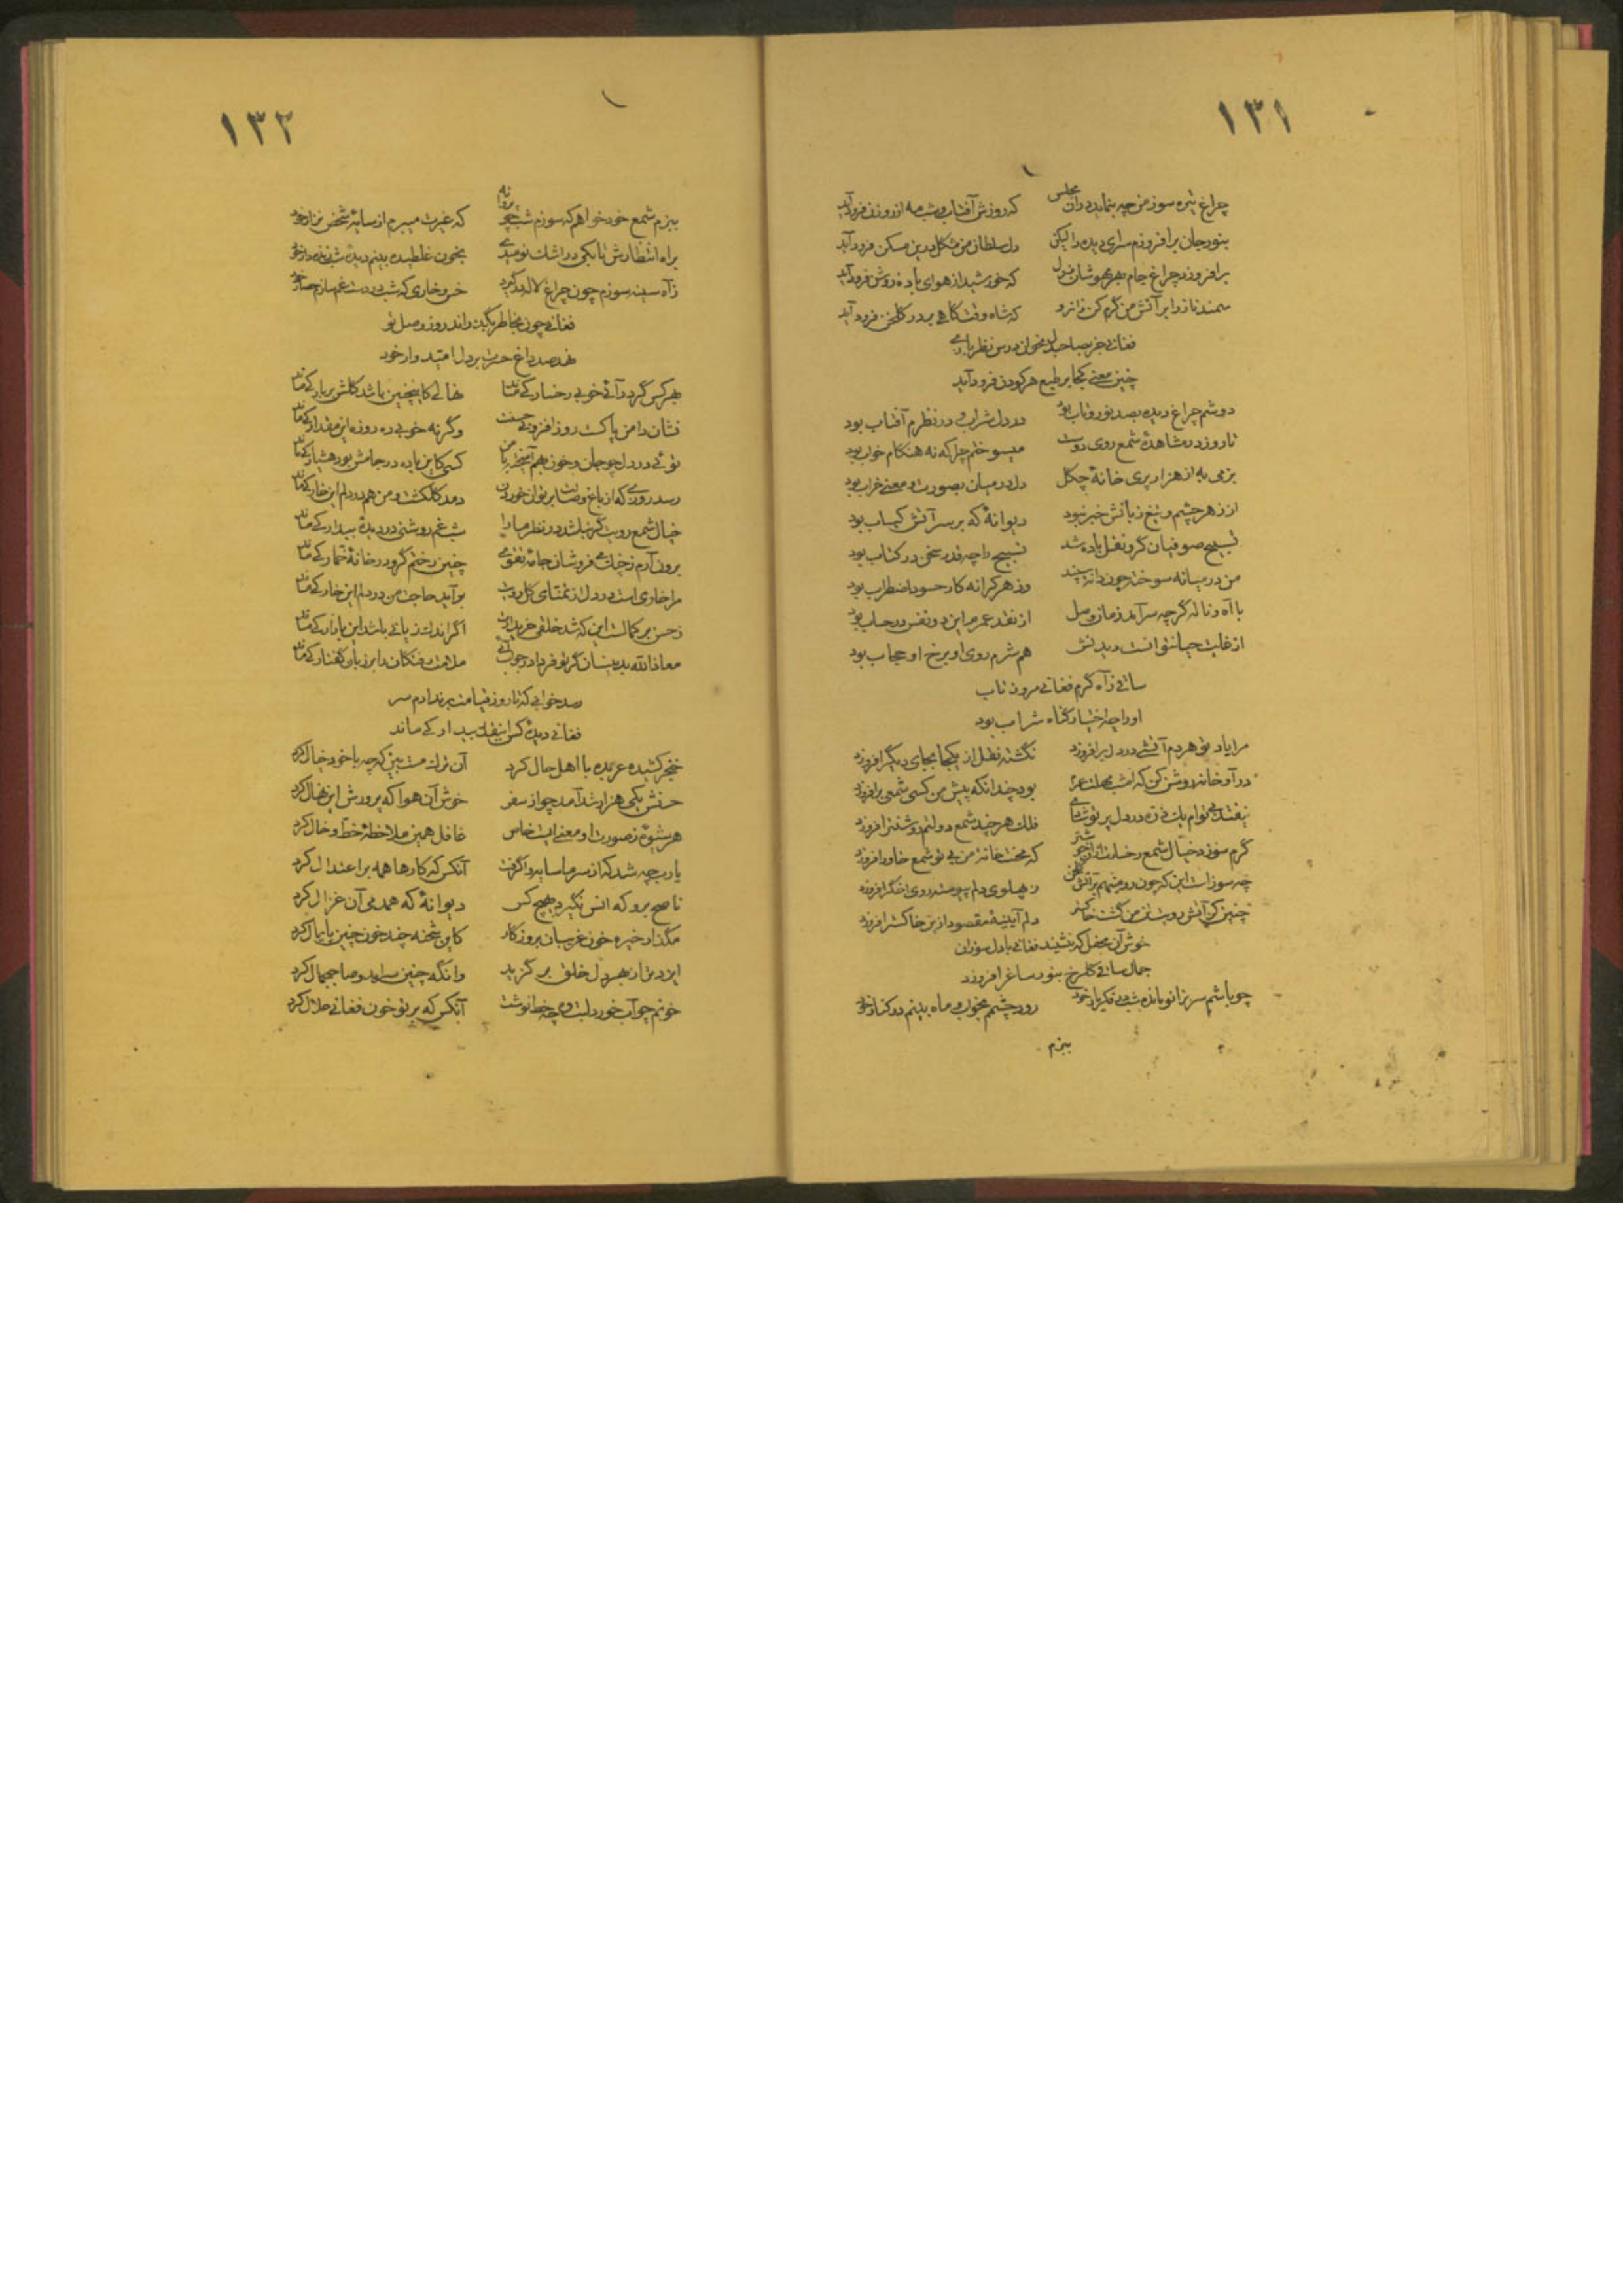 ۱۳۱
چراغ تیره سوز من چه بنماید در آن مجلس که روزش آفتاب و شب مه از روزن فرود آید
بنور جان برافروزم سرای دیده را لیکن دل سلطان من مشکل درین مسکن فرود آید
برافروزد چراغ جام که خورشید از هوای باده فرود آید
سمند ناز را بر آتش من گرم کن که شاه وقت گاهی بر در گلخن فرود آید
فغانی جز بصاحبدل مخوان درس نظربازی
چنین معنی کجا بر طبع هر کودن فرود آید
دوشم چراغ دیده بصد نور و تاب بود در دل شراب و در نظرم آفتاب بود
تا روز در مشاهدهٔ شمع روی دوست میسوختم چراکه نه هنگام خواب بود
بزمی به از هزار پری خانهٔ چگل دل در میان بصورت و معنی خراب بود
از زهر چشم و تیغ زبانش خبر نبود دیوانهٔ که بر سر آتش کباب بود
تسبیح صوفیان گرو نقل باده شد تسبیح را چه قدر سخن در کتاب بود
من در میانه سوخته چون دانهٔ سپند وز هر کرانه کار حسود اضطراب بود
با آه و ناله گرچه سرآمد زمان وصل از نقد عمر ما این دو نفس در حساب بود
از غایت حیا نتوانست دیدنش هم شرم روی او برخ او حجاب بود
ساقی ز آه گرم فغانی مرو ز تاب
او را چه اختیار گناه شراب بود
مرا یاد تو هردم آتشی در دل برافروزد نگشته شعله از یکجا بجای دیگر افروزد
درآ و خانه روشن کن که امشب مهلت عمر بود چندانکه پیش من کسی شمعی برافروزد
فلک هر چند شمع دولتم روشنتر افروزد
گرم سوزد خیال شمع رخسارت از آن خوشتر که محنت خانهٔ من بی تو شمع خاور افروزد
چه سوز است این که چون رو مینهم بر آتش گلخن ز پهلوی دلم پیوسته روی اخگر افروزد
چنین کز آتش دوست تن من گشت خاکستر دلم آیینهٔ مقصود ازین خاکستر افروزد
خوش آن محفل که بنشیند فغانی با دل سوزان
جمال ساقی گلرخ بنور ساغر افروزد
چو باشم سر بزانو مانده شب در فکر یار خود رود چشمم بخواب و ماه بینم در کنار خود
بزم
۱۳۲
ببزم شمع خود خواهم که سوزم شب چو پروانه که غیرت میبرم از سایهٔ شخص نزار خود
براه انتظارش تا بکی در اشک نومیدی بخون غلطیده بینم دیدهٔ شب زنده دار خود
ز آه سینه سوزم چون چراغ لاله درگیرد خس و خاری که شب در دشت غم سازم حصار خود
فغانی چون بخاطر بگذراند روز وصل تو
نهد صد داغ حسرت بر دل امیدوار خود
بهر کس گرد رآئی خوبی رخسار کی ماند نهالی کاینچنین باشد گلش بر بار کی ماند
نشان دامن پاکست روزافزونی حسنت وگرنه خوبی ده روزه این مقدار کی ماند
توئی در دل چو جان و خون هم آمیخته با من کسی کاین باده در جامش بود هشیار کی ماند
رسد روزی که از باغ وصالت بر توان خوردن دمد گلگشت و من هم در دلم این خار کی ماند
خیال شمع رویت گر نباشد در نظر ما را شب غم روشنی در دیدهٔ بیدار کی ماند
برون آرم ز چنگ می فروشان جامهٔ تقوی چنین رختم گرو در خانهٔ خمار کی ماند
مرا خاری است در دل از تمنای گل رویت برآید حاجت من در دلم این خار کی ماند
ز حسن بر کمالست این که شد خلقی خریدارت اگر اندک زیانی باشد این بازار کی ماند
معاذالله بدینسان گر تو فردا در جواب آئی ملامت رفتگان را بر زبان گفتار کی ماند
صد خوابی که تا روز قیامت برندارم سر
فغانی دیدهٔ کس اینقدر بیدار کی ماند
خنجر کشیده عربده با اهل حال کرد آن ترک مست بین که چه با خود خیال کرد
حسنش یکی هزار شد آمد چو از سفر خوش آن هوا که پرورش این نهال کرد
هر شیوهٔ ز صورت او معنی است خاص غافل همین ملاحظهٔ خط و خال کرد
یارب چه شد که از سر ما سایه واگرفت آنکس که کارها همه بر اعتدال کرد
ناصح برو که انس نگیرد بهیچ کس دیوانهٔ که همدمی آن غزال کرد
مگذار خیره خون غریبان بروزگار کاین شحنه چند خون چنین پایمال کرد
ایزد ترا ز بهر دل خلق برگزید وانگه چنین سرآمد و صاحبجمال کرد
خونم چو آب خورد لبت وه چه خط نوشت آنکس که بر تو خون فغانی حلال کرد